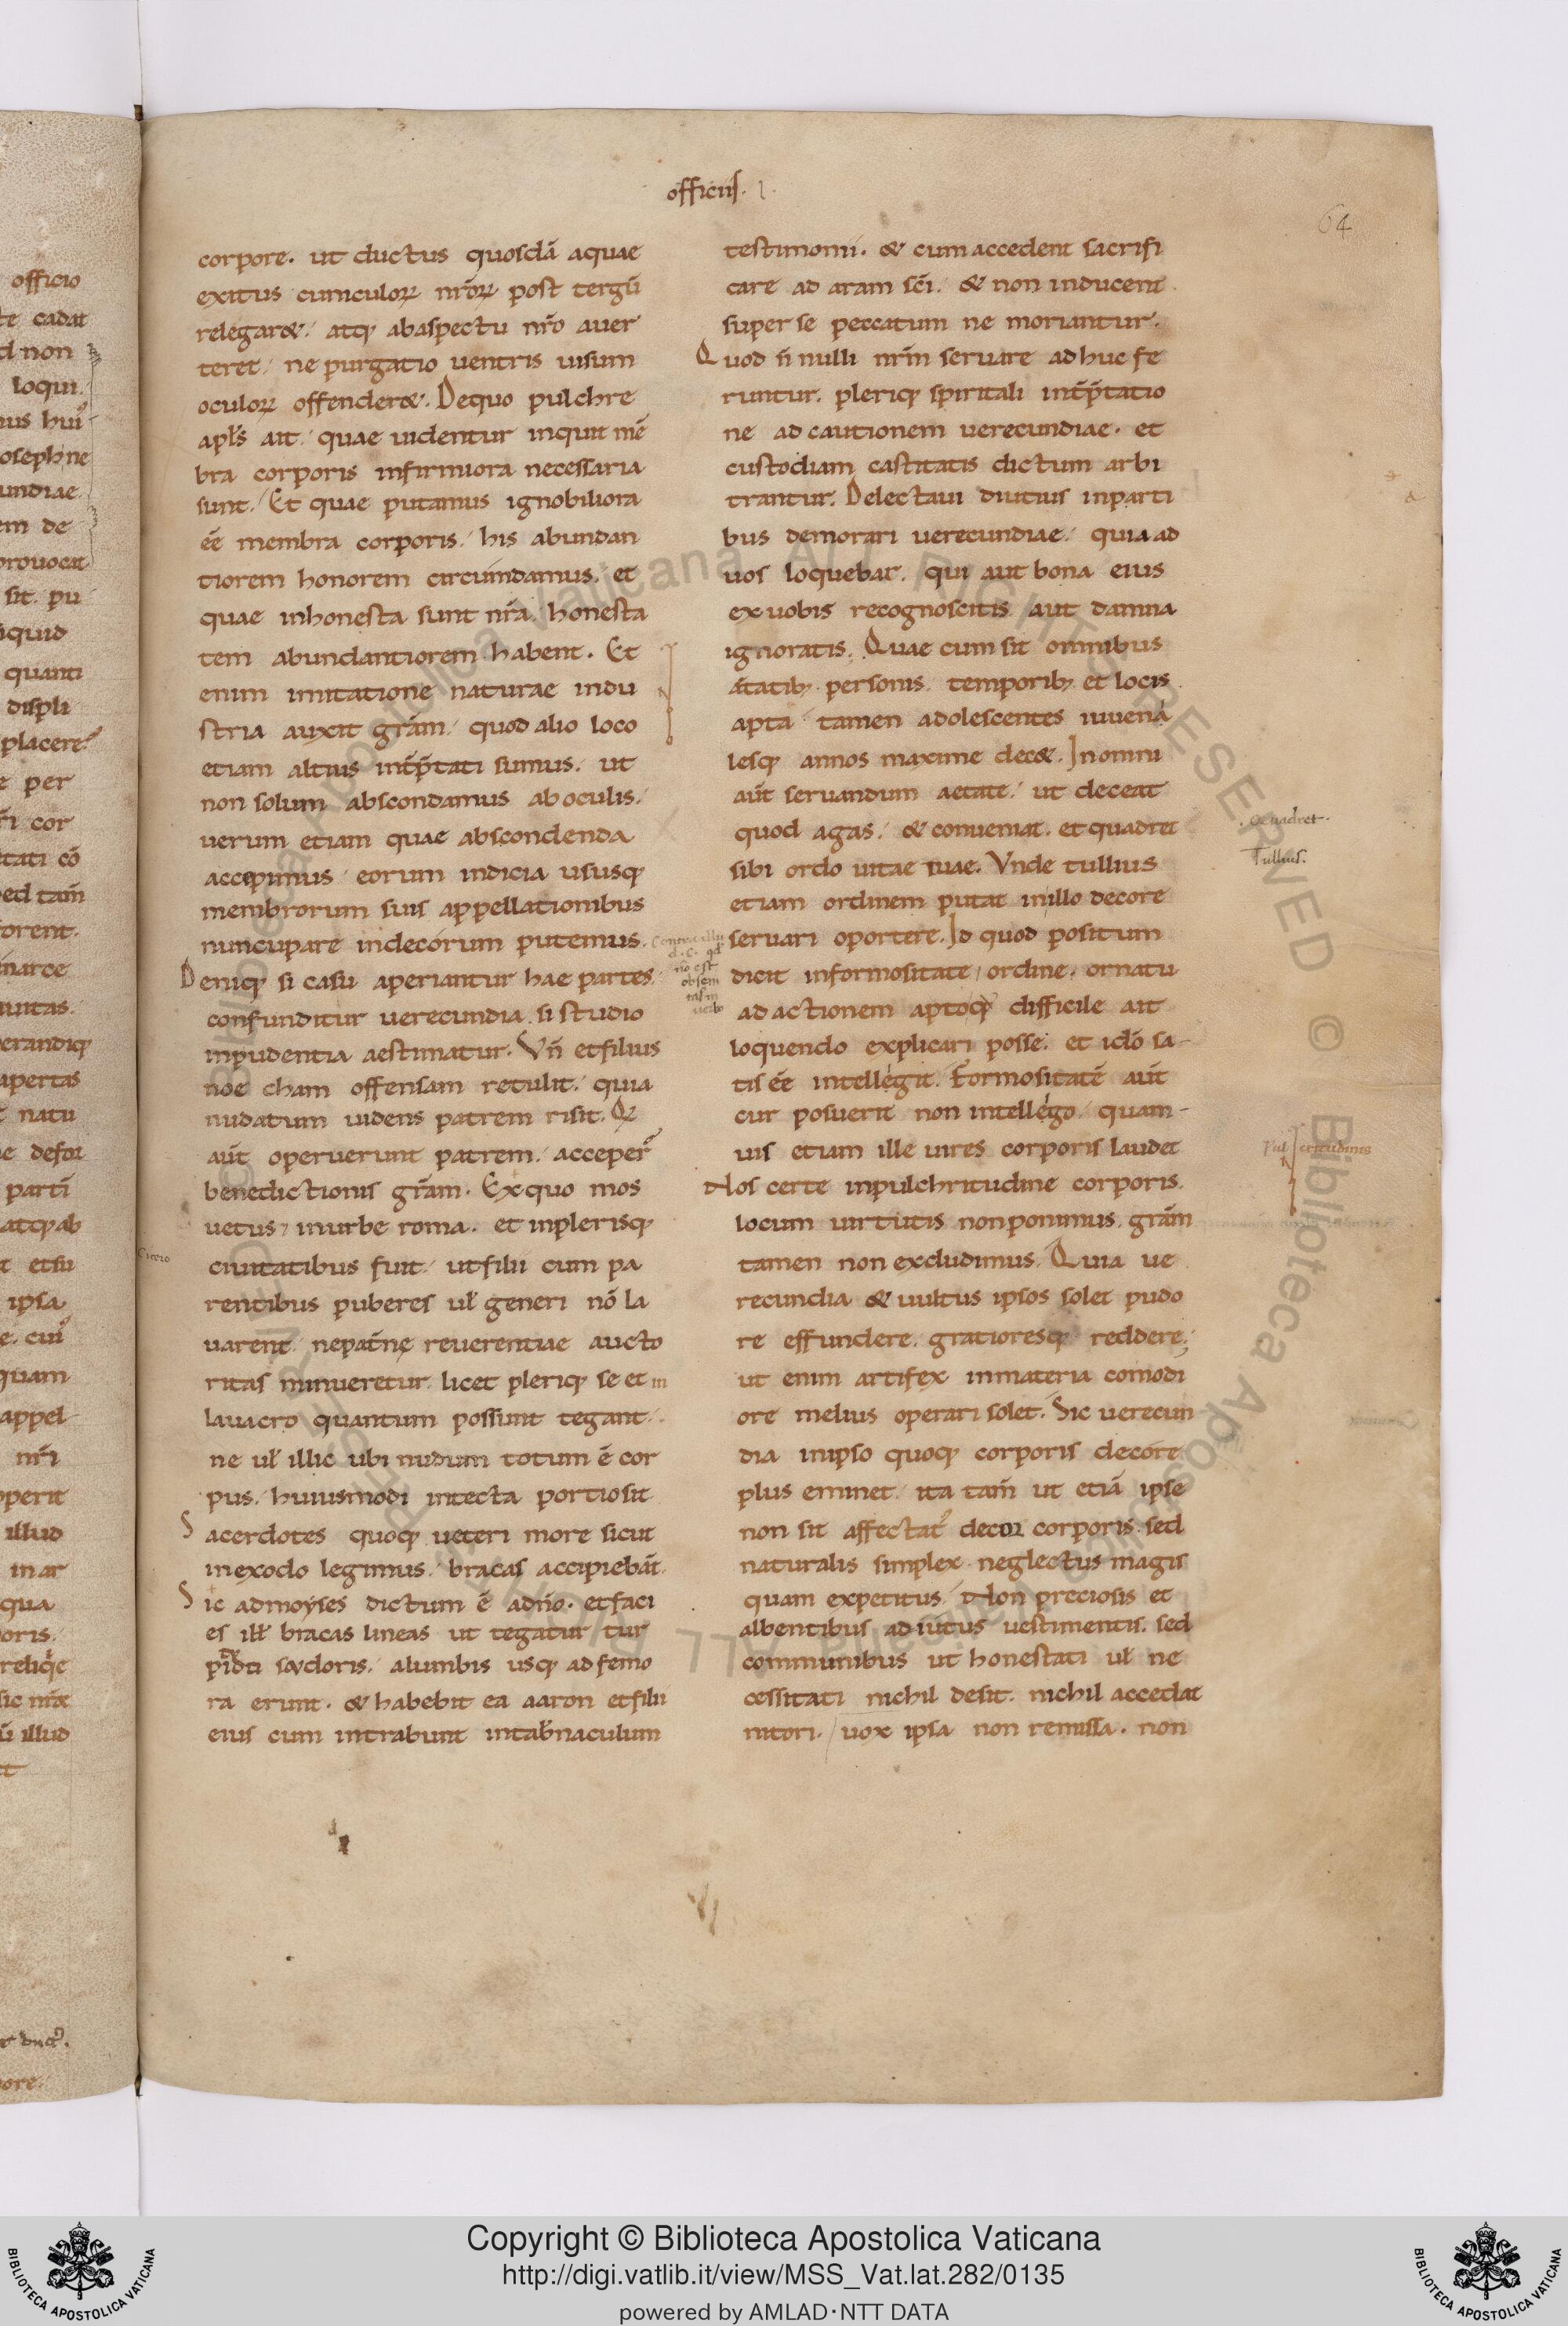 officiis. I.
64
corpore. ut ductus quosdā aquae
exitus cuniculoꝝ nr̄oꝝ post tergū
relegar&. atq; ab aspectu nr̄o auer
teret. ne purgatio uentris uisum
oculoꝝ offender&. De quo pulchre
apl̄s ait. quae uidentur inquit mē
bra corporis infirmiora necessaria
sunt. Et quae putamus ignobiliora
ēē membra corporis. his abundan
tiorem honorem circūmdamus. et
quae inhonesta sunt nr̄a. honesta
tem abundantiorem habent. Et
enim imitatione naturae indu
stria auxit grām. quod alio loco
etiam altius int̄p̄tati sumus. ut
non solum abscondamus ab oculis.
uerum etiam quae abscondenda
accepimus eorum indicia ususq;
membrorum suis appellationibus
nuncupare indecorum putemus.
Deniq; si casu aperiantur hae partes.
confunditur uerecundia. si studio
inpudentia aestimatur. Vn̄ et filius
noe cham offensam retulit. quia
nudatum uidens patrem risit. Q̄
aūt operuerunt patrem. acceper̄
benedictionis grām. Ex quo mos
uetus in urbe roma. et in plerisq;
ciuitatibus fuit. ut filii cum pa
rentibus puberes ul̄ generi nō la
uarent. ne pat̄nę reuerentiae aucto
ritas minueretur. licet pleriq; se et in
lauacro quantum possunt tegant.
ne ul̄ illic ubi nudum totum ē cor
pus. huiusmodi intecta portio sit
Sacerdotes quoq; ueteri more sicut
in exodo legimus. bracas accipiebāt.
Sic ad moyses dictum ē a dn̄o. et faci
es ill̄ bracas lineas ut tegatur tur
pido. a lumbis usq; ad femo
ra erunt. & habebit ea aaron et filii
eius cum intrabunt in tab̄naculum
testimonii. & cum accedent sacrifi
care ad aram sc̄i. & non inducent
super se peccatum ne moriantur.
Quod n̄ nulli nr̄m seruare ad huc fe
runtur. pleriq; spiritali int̄p̄tatio
ne ad cautionem uerecundiae. et
custodiam castitatis dictum arbi
trantur. Delectaui diutius in parti
bus demorari uerecundiae. quia ad
uos loquebar. qui aut bona eius
ex uobis recognoscitis. aut damna
ignoratis. Quae cum sit omnibus
ætatib; personis temporib; et locis
apta tamen adolescentes iuuena
lesq; annos maxime dec&. In omni
aūt seruandum aetate. ut deceat
quod agas. & conueniat. et quadret
sibi ordo uitae tuae. Vnde tullius
etiam ordinem putat in illo decore
seruari oportere. Id quod positum
dicit in formositate ordine. ornatu
ad actionem aptoq; difficile ait
loquendo explicari posse. et idō sa-
tis ēē intellegit. Formositatē aūt
cur posuerit non intellego. quam-
uis etiam ille uires corporis laudet
Nos certe in pulchritudine corporis.
locum uirtutis non ponimus. grām
tamen non excludimus. Quia ue
recundia & uultus ipsos solet pudo
re effundere. gratioresq; reddere.
ut enim artifex in materia comodi
ore melius operari solet. Sic uerecun
dia in ipso quoq; corporis decore
plus eminet. ita tam̄ ut etiā ipse
non sit affectat' decor corporis. sed
naturalis simplex neglectus magis
quam expetitus. Non preciosis et
albentibus adiutus uestimentis. sed
communibus ut honestati ul̄ ne
cessitati nichil desit. nichil accedat
nitori. uox ipsa non remissa. non
. Quadret.
Tullius.
Cicero
Copyright © Biblioteca Apostolica Vaticana
http://digi.vatlib.it/view/MSS_Vat.lat.282/0135
powered by AMLAD·NTT DATA
BIBLIOTECA APOSTOLICA VATICANA
BIBLIOTECA APOSTOLICA VATICANA